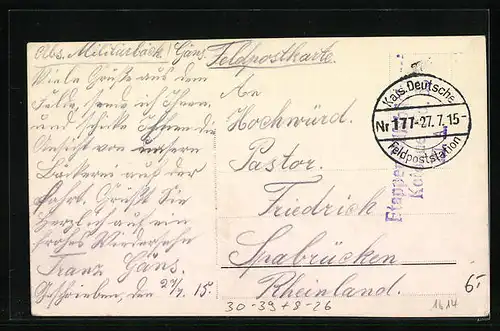 Abs. Militärbäck. Gäns.
Feldpostkarte.
Viele Grüße aus dem
Felde, sende ich Ihnen,
und schicke Ihnen die
Ansicht von unsern
Bäckerei auf der
Fahrt. Grüßt Sie
Herzlich auf ein
frohes Wiedersehn
Franz Gäns.
Geschrieben, den 27/7. 15.
An
Hochwürd.
Pastor.
Friedrick
Spabrücken
Rheinland.
Kais. Deutsche
Nr 177 -27.7.15-
Feldpoststation
Etappen
Ko
30-39+8-26
1614
6.-